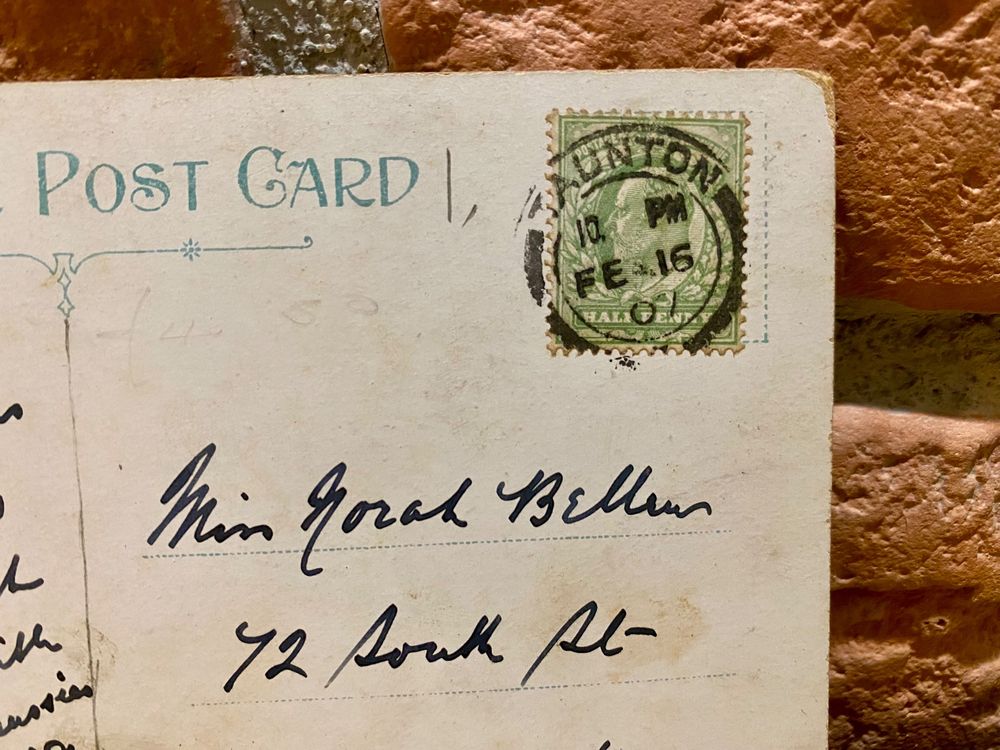 POST CARD
AUNTON
10. PM
FE 16
07
HALFPENNY
Miss Norah
72 South St